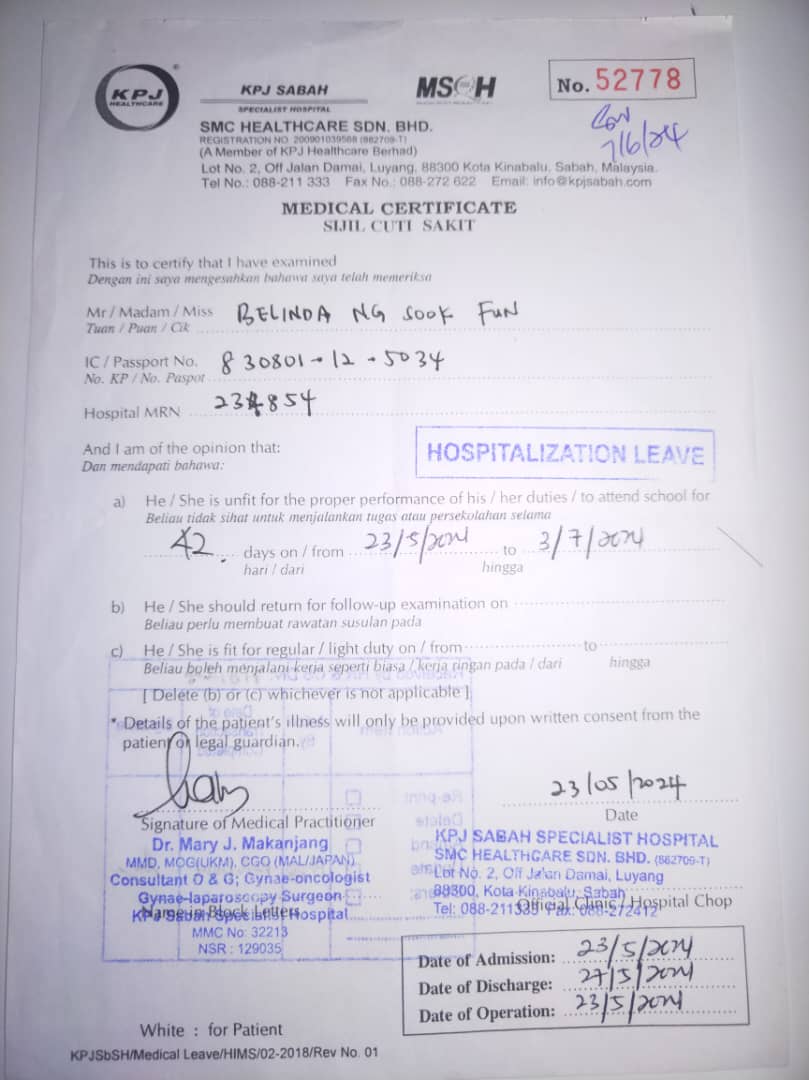 KPJ
HEALTHCARE
KPJ SABAH
SPECIALIST HOSPITAL
MSQH
No. 52778
7/6/24
SMC HEALTHCARE SDN. BHD.
REGISTRATION NO 200901039568 (882709-T)
(A Member of KPJ Healthcare Berhad)
Lot No. 2, Off Jalan Damai, Luyang, 88300 Kota Kinabalu, Sabah, Malaysia.
Tel No.: 088-211 333 Fax No.: 088-272 622 Email: info@kpjsabah.com
MEDICAL CERTIFICATE
SIJIL CUTI SAKIT
This is to certify that I have examined
Dengan ini saya mengesahkan bahawa saya telah memeriksa
Mr / Madam / Miss BELINDA NG SOOK FUN
Tuan / Puan / Cik
IC / Passport No. 830801-12-5034
No. KP / No. Paspot
Hospital MRN 234854
And I am of the opinion that:
Dan mendapati bahawa:
HOSPITALIZATION LEAVE
a) He / She is unfit for the proper performance of his / her duties / to attend school for
Beliau tidak sihat untuk menjalankan tugas atau persekolahan selama
42 days on / from 23/5/2024 to 3/7/2024
hari / dari hingga
b) He / She should return for follow-up examination on
Beliau perlu membuat rawatan susulan pada
c) He / She is fit for regular / light duty on / from to
Beliau boleh menjalani kerja seperti biasa / kerja ringan pada / dari hingga
[ Delete (b) or (c) whichever is not applicable ]
* Details of the patient's illness will only be provided upon written consent from the
patient or legal guardian.
23/05/2024
Signature of Medical Practitioner
Date
Dr. Mary J. Makanjang
MMD, MOG(UKM), CGO (MAL/JAPAN)
Consultant O & G; Gynae-oncologist
Gynae-laparoscopy Surgeon
KPJ Sabah Specialist Hospital
Name in Block Letters
MMC No: 32213
NSR : 129035
KPJ SABAH SPECIALIST HOSPITAL
SMC HEALTHCARE SDN. BHD. (882709-T)
Lot No. 2, Off Jalan Damai, Luyang
88300, Kota Kinabalu, Sabah
Tel: 088-211333 Fax: 088-272412
Official Clinic / Hospital Chop
Date of Admission: 23/5/2024
Date of Discharge: 27/5/2024
Date of Operation: 23/5/2024
White : for Patient
KPJSbSH/Medical Leave/HIMS/02-2018/Rev No. 01